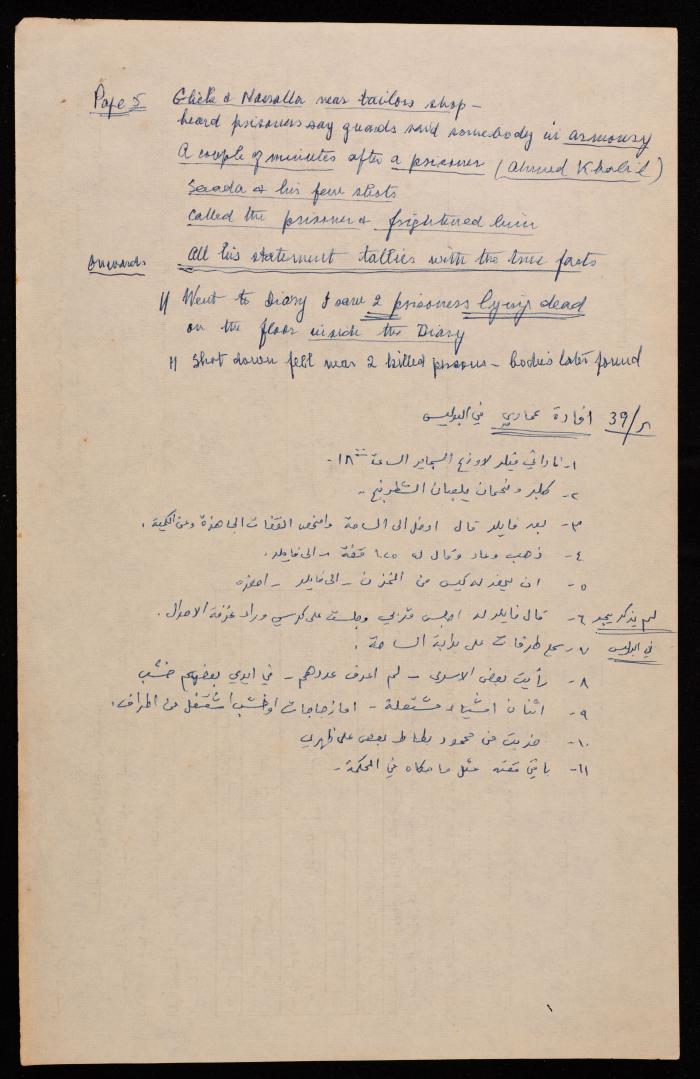 Page 5 Glick & Nasralla near tailors shop -
heard prisoners say guards said somebody in armoury
A couple of minutes after a prisoner (Ahmed Khalil)
Saada & his few shots
called the prisoner & frightened him
Onwards All his statement tallies with the true facts
" Went to Diary & saw 2 prisoners lying dead
on the floor inside the Diary
" Shot down fell near 2 killed prisoners - bodies later found
39/ افادة عماري في البوليس
١- ناداني فيلد لاوزع السجاير الساعة ١٨
٢- كلير و نحمان يلعبان الشطرنج -
٣- بعد فايلد قال ادخل الى الساحة وافحص القفف الجاهزة وعن الكمية .
٤- ذهب وعاد وقال له ١٢٥ قفة - الى فايلد .
٥- ان يحضر له كيس من المخزن - الى فايلد - احضره
لم يذكر يجد ٦- قال فايلد له اجلس قربي وجلست على كرسي وراء غرفة
في البوليس ٧- سمع طرقات على بوابة الساحة .
٨- رأيت بعض الاسرى - لم اعرف عددهم - في ايدي بعضهم خشب
٩- اثنان اشياء مشتعلة - اما زجاجات او خشب اشتعل من اطرافه .
١٠- ضربت من محمود بطاطا بعصى على ظهري
١١- باقي قصته مثل ما حكاه في المحكمة -